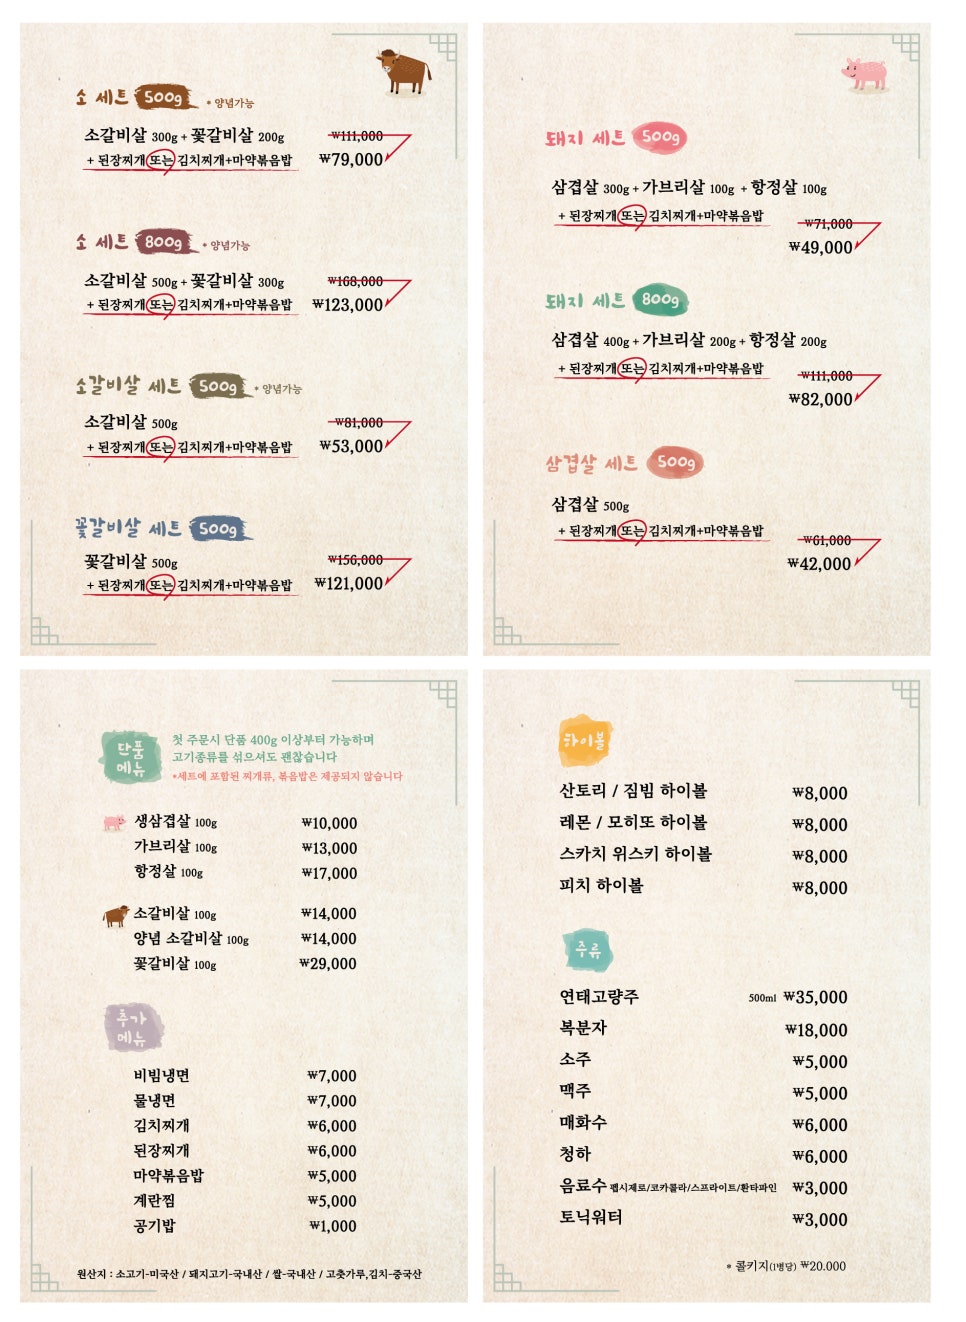 소 세트 500g * 양념가능
소갈비살 300g + 꽃갈비살 200g ₩111,000
+ 된장찌개 또는 김치찌개+마약볶음밥 ₩79,000
소 세트 800g * 양념가능
소갈비살 500g + 꽃갈비살 300g ₩168,000
+ 된장찌개 또는 김치찌개+마약볶음밥 ₩123,000
소갈비살 세트 500g * 양념가능
소갈비살 500g ₩81,000
+ 된장찌개 또는 김치찌개+마약볶음밥 ₩53,000
꽃갈비살 세트 500g
꽃갈비살 500g ₩156,000
+ 된장찌개 또는 김치찌개+마약볶음밥 ₩121,000
돼지 세트 500g
삼겹살 300g + 가브리살 100g + 항정살 100g
+ 된장찌개 또는 김치찌개+마약볶음밥 ₩71,000
₩49,000
돼지 세트 800g
삼겹살 400g + 가브리살 200g + 항정살 200g
+ 된장찌개 또는 김치찌개+마약볶음밥 ₩111,000
₩82,000
삼겹살 세트 500g
삼겹살 500g
+ 된장찌개 또는 김치찌개+마약볶음밥 ₩61,000
₩42,000
단품
메뉴
첫 주문시 단품 400g 이상부터 가능하며
고기종류를 섞으셔도 괜찮습니다
*세트에 포함된 찌개류, 볶음밥은 제공되지 않습니다
생삼겹살 100g ₩10,000
가브리살 100g ₩13,000
항정살 100g ₩17,000
소갈비살 100g ₩14,000
양념 소갈비살 100g ₩14,000
꽃갈비살 100g ₩29,000
추가
메뉴
비빔냉면 ₩7,000
물냉면 ₩7,000
김치찌개 ₩6,000
된장찌개 ₩6,000
마약볶음밥 ₩5,000
계란찜 ₩5,000
공기밥 ₩1,000
원산지 : 소고기-미국산 / 돼지고기-국내산 / 쌀-국내산 / 고춧가루,김치-중국산
하이볼
산토리 / 짐빔 하이볼 ₩8,000
레몬 / 모히또 하이볼 ₩8,000
스카치 위스키 하이볼 ₩8,000
피치 하이볼 ₩8,000
주류
연태고량주 500ml ₩35,000
복분자 ₩18,000
소주 ₩5,000
맥주 ₩5,000
매화수 ₩6,000
청하 ₩6,000
음료수 펩시제로/코카콜라/스프라이트/환타파인 ₩3,000
토닉워터 ₩3,000
* 콜키지(1병당) ₩20.000